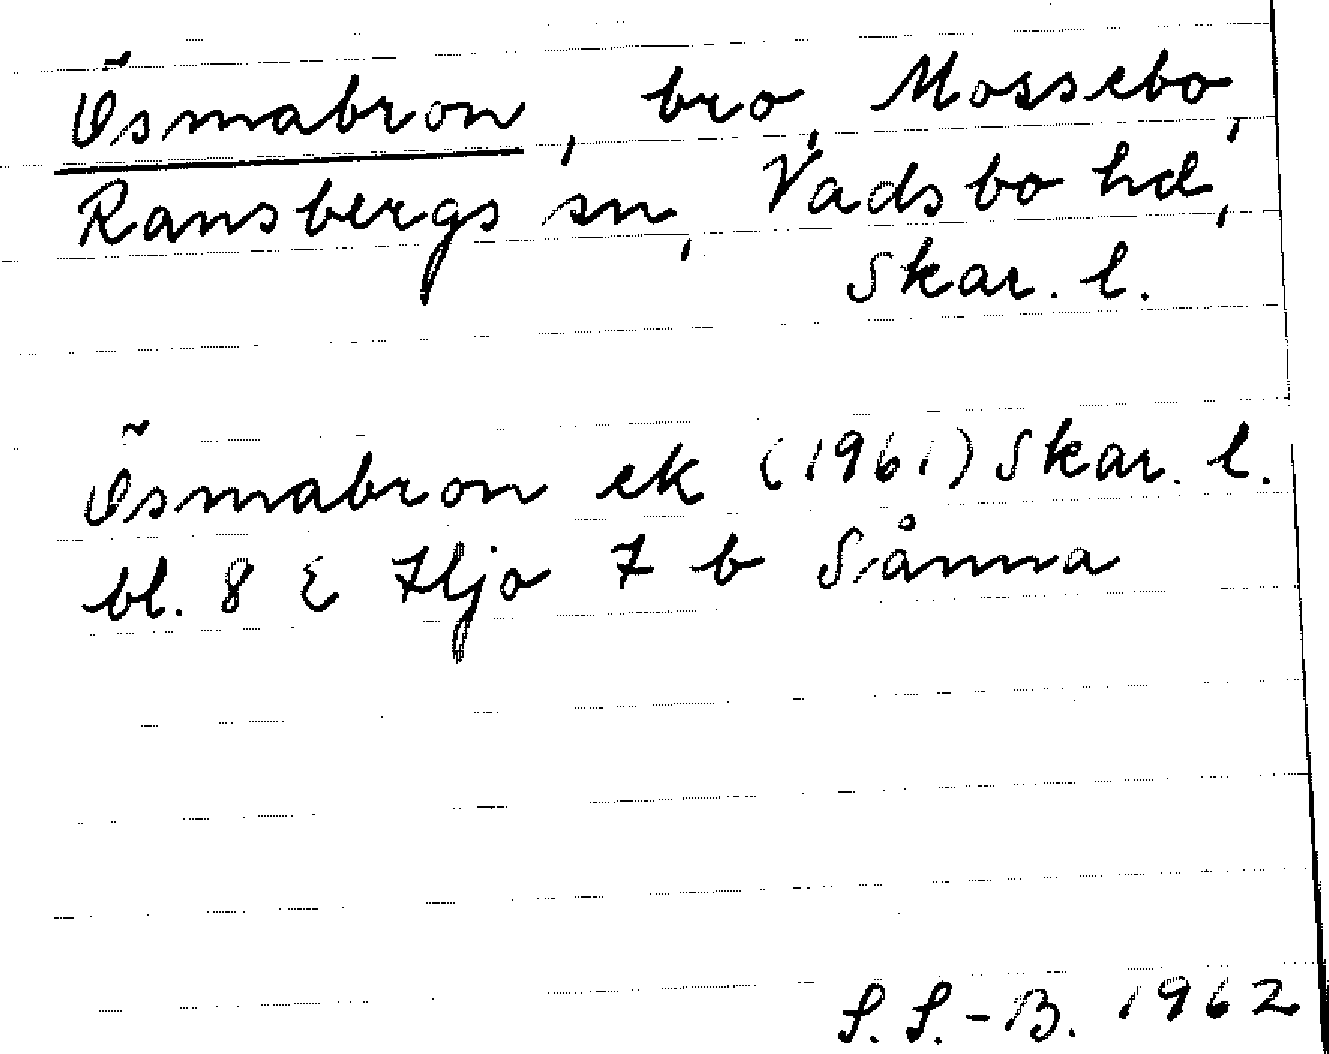 Ösmabron, bro, Mossebo,
Ransbergs sn, Vadsbo hd,
Skar. l.
Ösmabron ek (1961) Skar. l.
bl. 8 E Hjo 7 b Sånna
S. S.-B. 1962